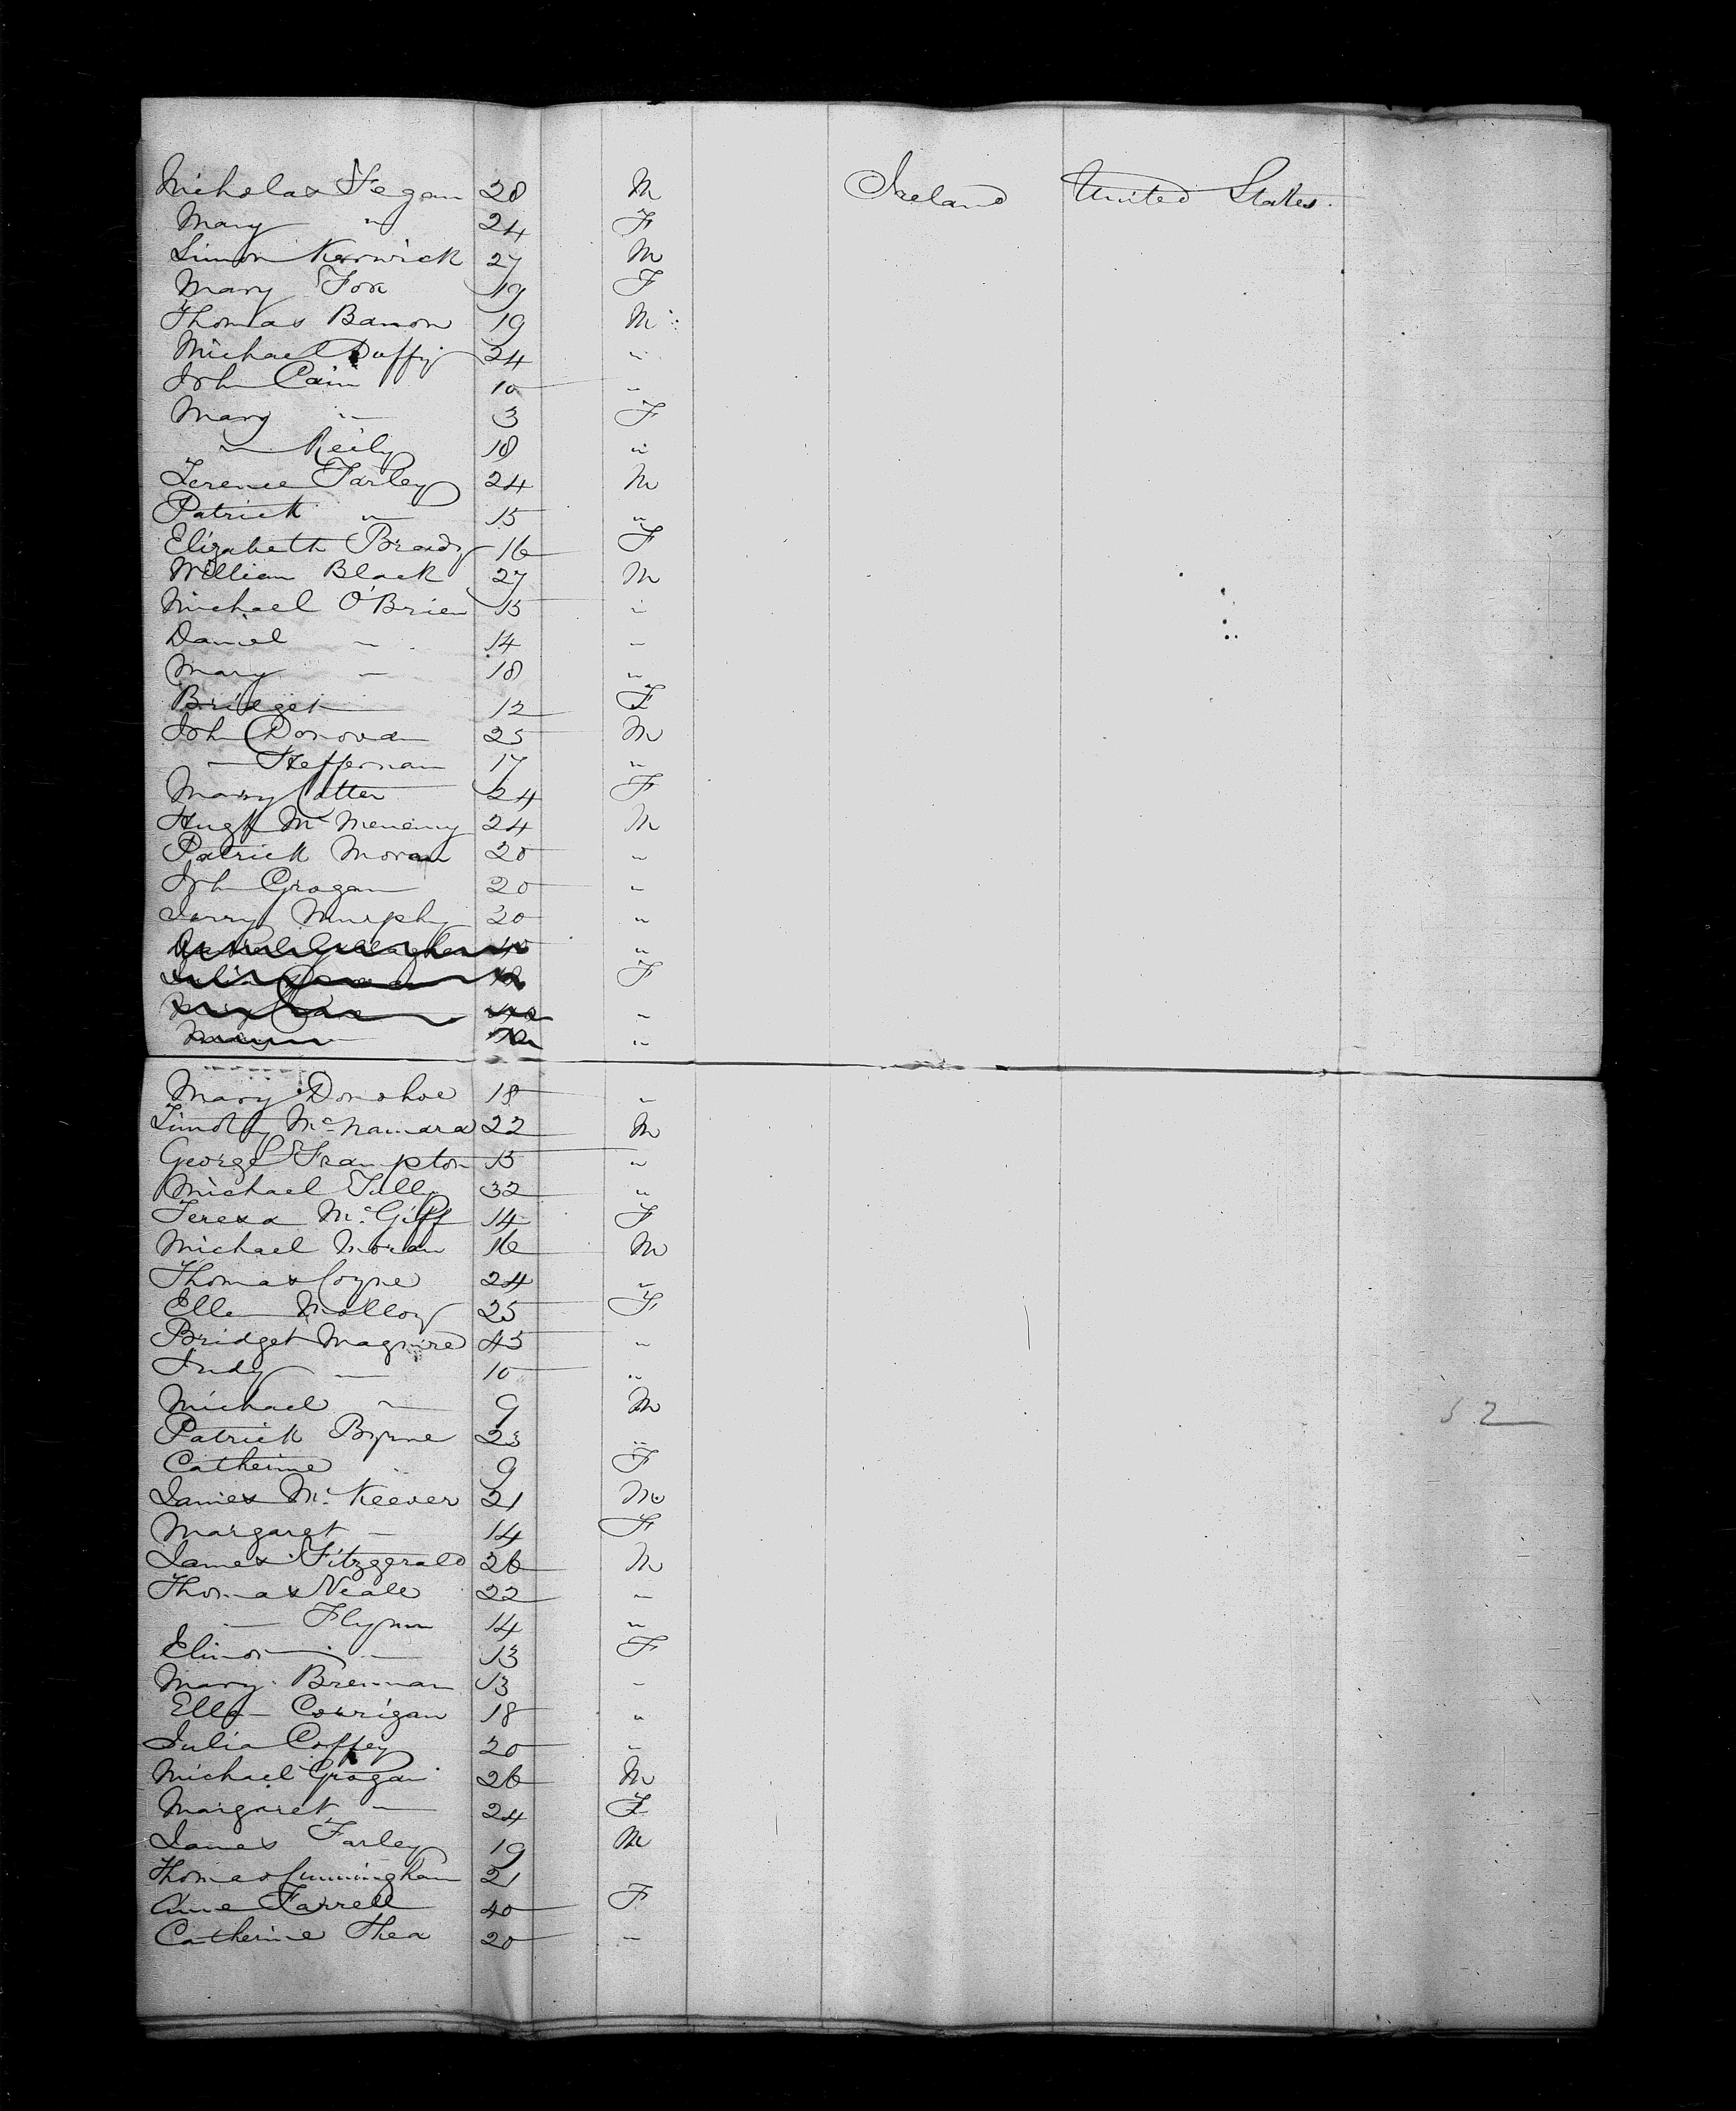 Nicholas Fegan 28 M Ireland United States.
Mary " 24 F
Simon Kerwick 27 M
Mary Fox 19 F
Thomas Banon 19 M
Michael Duffy 24 "
John Cain 10 "
Mary " 3 F
" Reily 18 "
Terence Farley 24 M
Patrick " 15 "
Elizabeth Brady 16 F
William Black 27 M
Michael O'Brien 15 "
Daniel " 14 "
Mary " 18 "
Bridget 12 F
John Donovan 25 M
" Heffernan 17 "
Mary Cotter 24 F
Hugh Mc Menemy 24 M
Patrick Moran 20 "
John Grogan 20 "
Jerry Murphy 20 "
"
F
"
"
Mary Donohoe 18 "
Timothy Mc Namara 22 M
George Frampton 15 "
Michael Tully 32 "
Teresa Mc Giff 14 F
Michael Moran 16 M
Thomas Coyne 24 "
Ellen Molloy 25 F
Bridget Maguire 45 "
Judy " 10 "
Michael " 9 M
Patrick Byrne 23 "
Catherine " 9 F
James Mc Keever 21 M
Margaret " 14 F
James Fitzgerald 26 M
Thomas Neale 22 "
" Flynn 14 "
Elinor " 13 F
Mary Brennan 13 "
Ellen Corrigan 18 "
Julia Coffey 20 "
Michael Grogan 26 M
Margaret " 24 F
James Farley 19 M
Thomas Cunningham 21
Anne Farrell 40 F
Catherine Shea 20 "
52